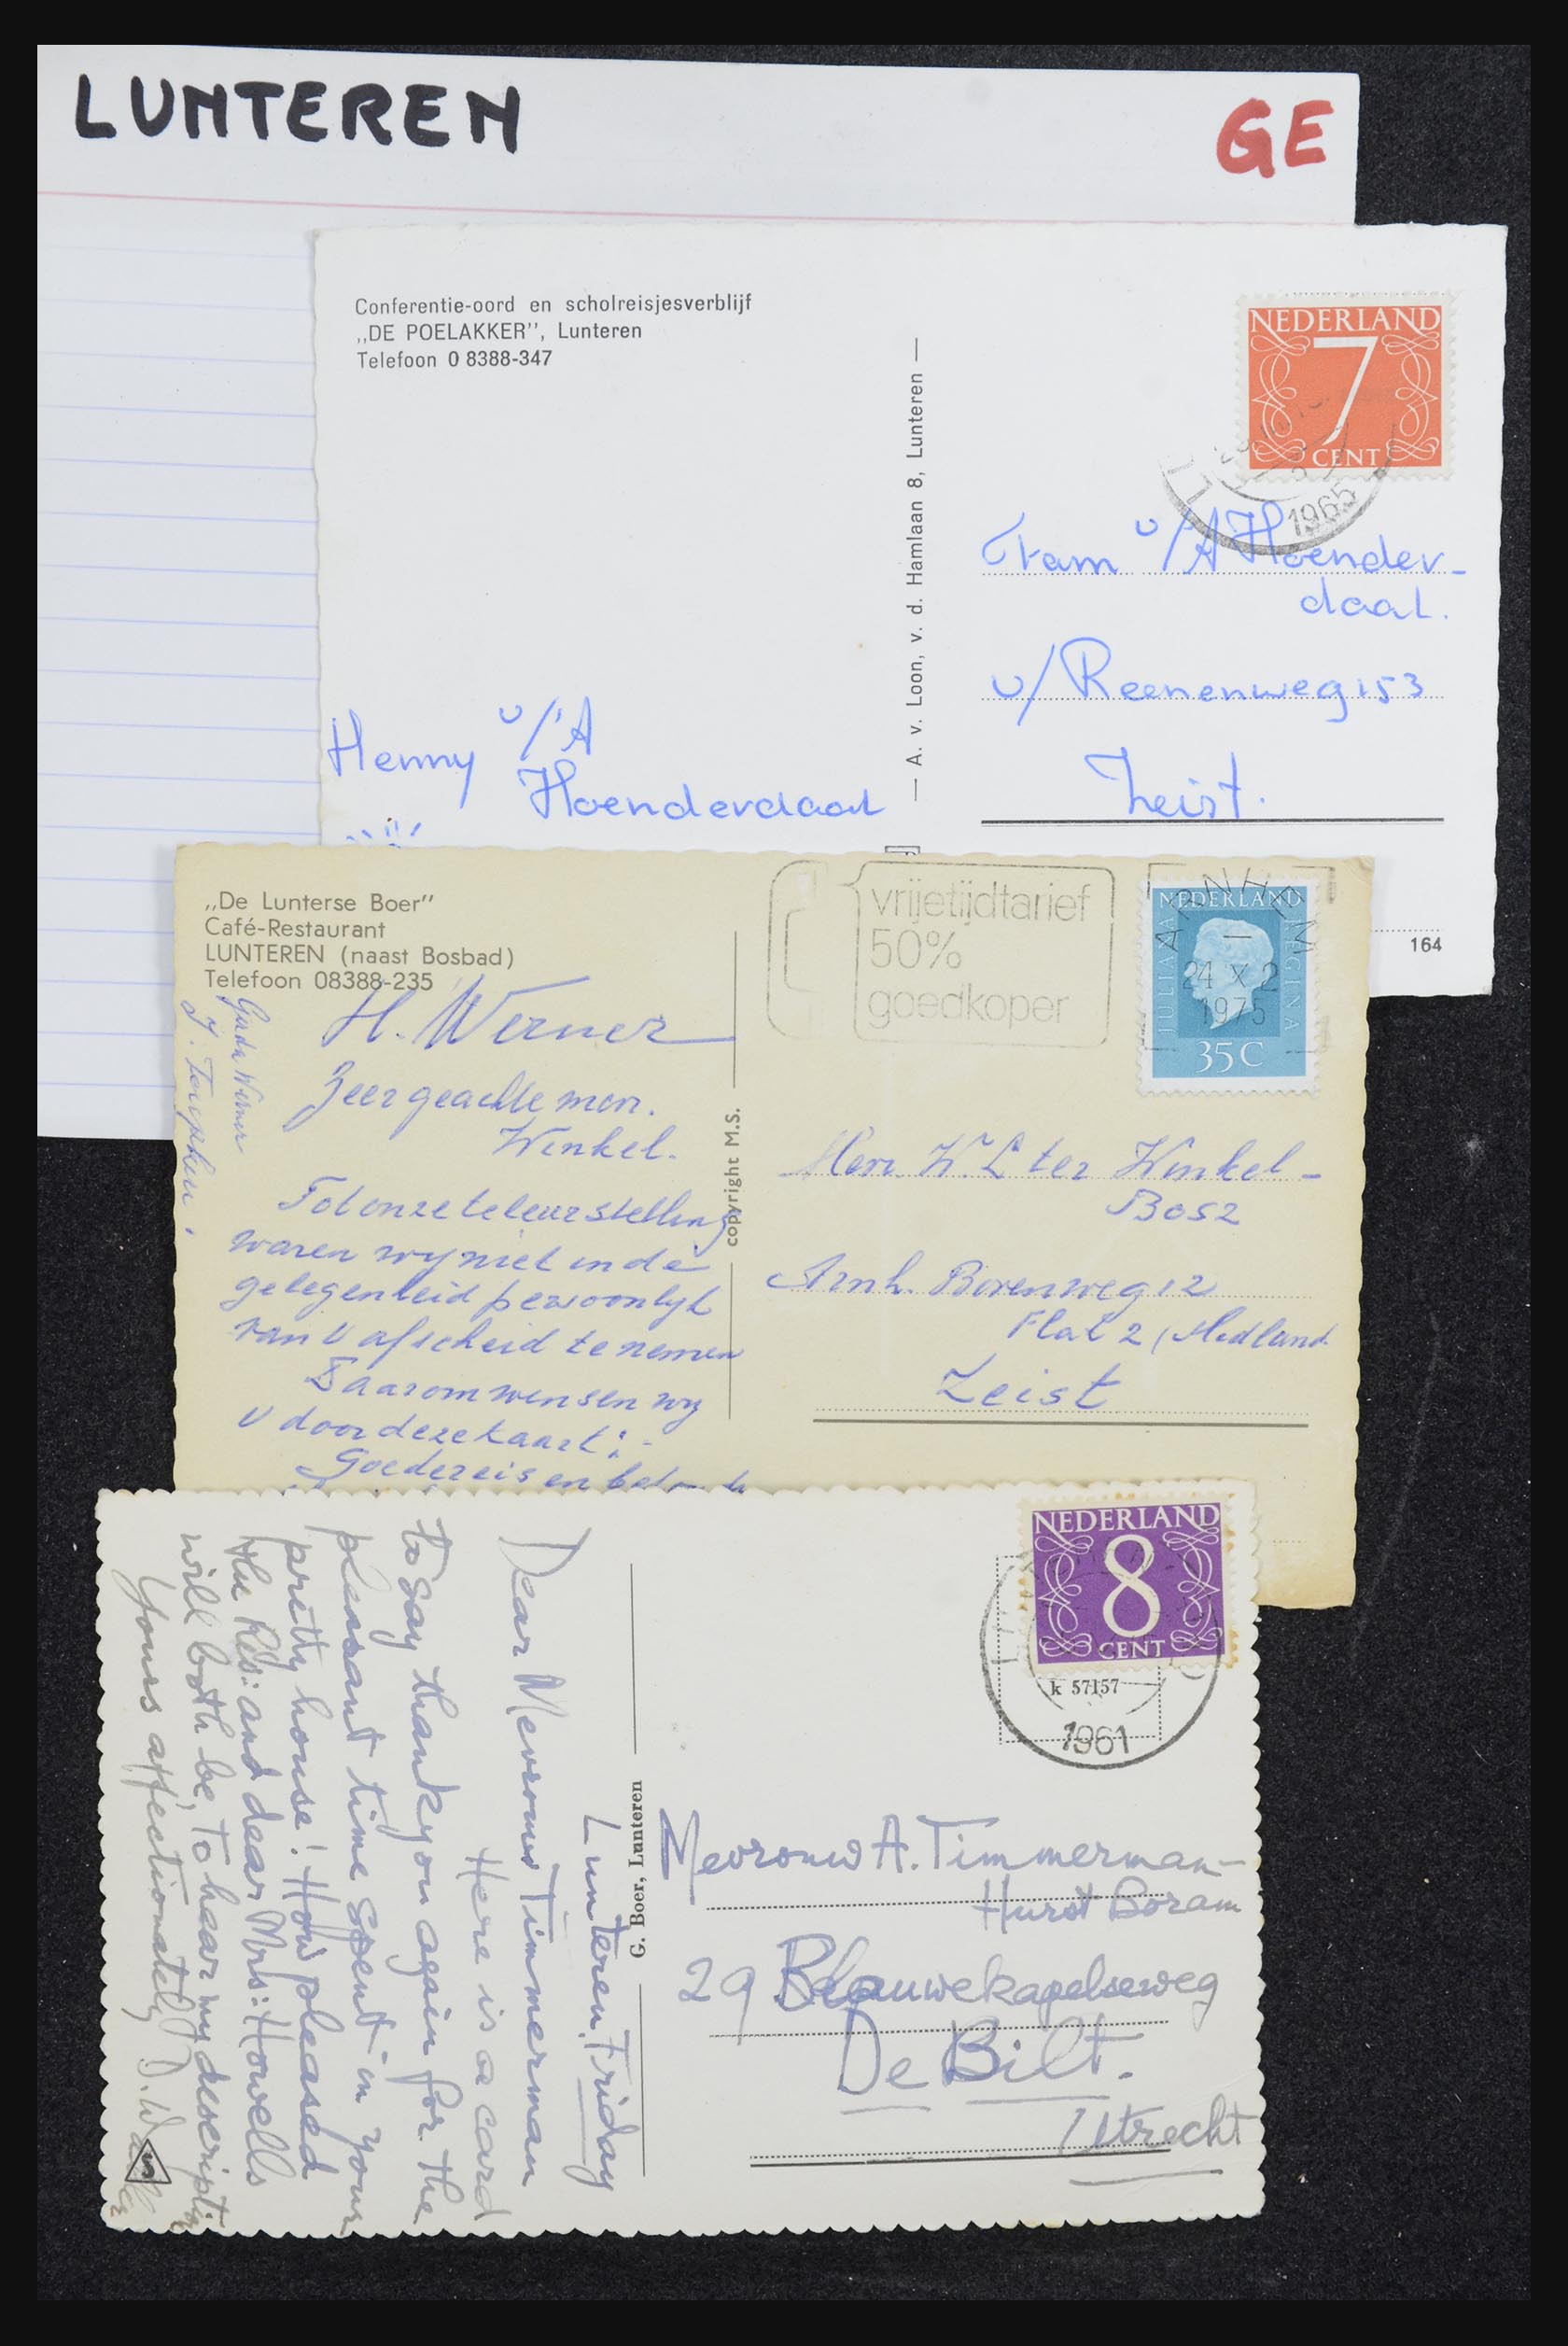 LUNTEREN
GE
Conferentie-oord en scholreisjesverblijf
„DE POELAKKER”, Lunteren
Telefoon 0 8388-347
— A. v. Loon, v. d. Hamlaan 8, Lunteren —
NEDERLAND
7
CENT
1965
Fam v/'A Hoender-
daal.
v/Reenenweg 153
Zeist.
Henny v/'A
Hoenderdaal
164
„De Lunterse Boer”
Café-Restaurant
LUNTEREN (naast Bosbad)
Telefoon 08388-235
Guda Werner
H. Werner
Zeer geachte men.
Winkel.
Tot onze teleurstelling
waren wy niet in de
gelegenheid persoonlyk
van U afscheid te nemen
Daarom wensen wy
U door deze kaart:-
Goede reis en
copyright M.S.
vrijetijdtarief
50%
goedkoper
ARNHEM
24 X 2
1975
NEDERLAND
JULIANA
REGINA
35 C
Herr W.L ter Winkel-
Bosz
Arnh. Bovenweg 12
Flat 2 (Medland
Zeist
Lunteren, Friday
Dear Mevrouw Timmerman
Here is a card
to say thank you again for the
pleasant time spent in your
pretty house! How pleased
the Res: and dear Mrs: Howells
will both be, to haar my descriptio
Yours affectionately D.
G. Boer, Lunteren
NEDERLAND
8
CENT
k 57157
1961
Mevrouw A. Timmerman-
Hurst Boram
29 Blauwekapelseweg
De Bilt.
Utrecht